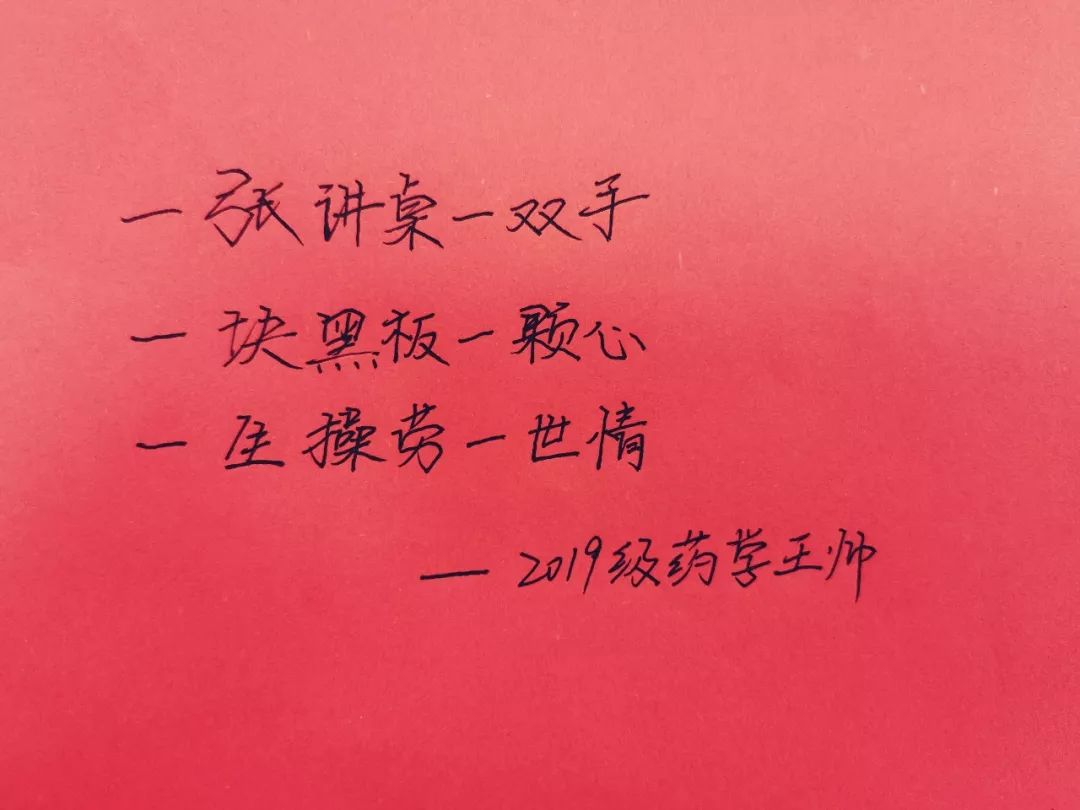 一张讲桌一双手
一块黑板一颗心
一生操劳一世情
— 2019级药学王帅